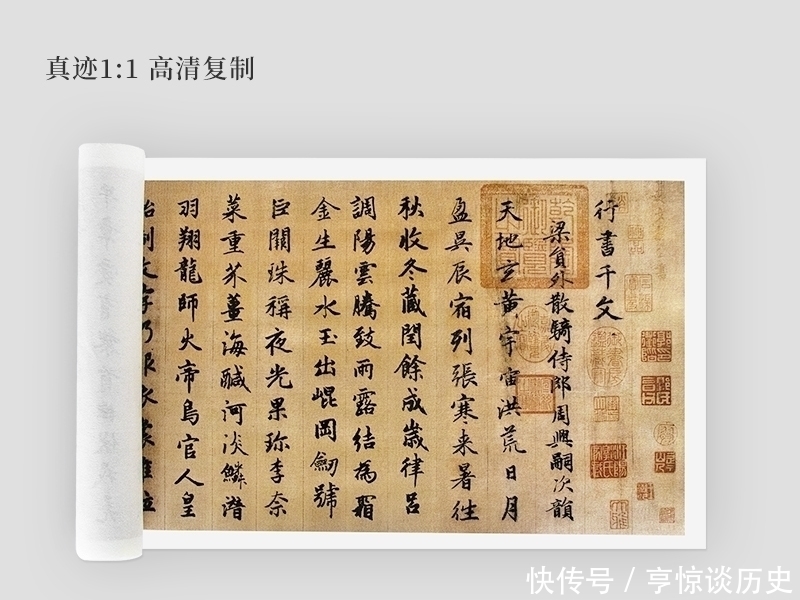 真迹1:1 高清复制
行書千文
梁貟外散騎侍郎周興嗣次韻
天地玄黃宇宙洪荒日月
盈昃辰宿列張寒来暑往
秋收冬藏閏餘成歲律呂
調陽雲騰致雨露結為霜
金生麗水玉出崐岡劒號
巨闕珠稱夜光果珍李柰
菜重芥薑海鹹河淡鱗潛
羽翔龍師火帝鳥官人皇
始制文字乃服衣裳推位
快传号 / 亨惊谈历史